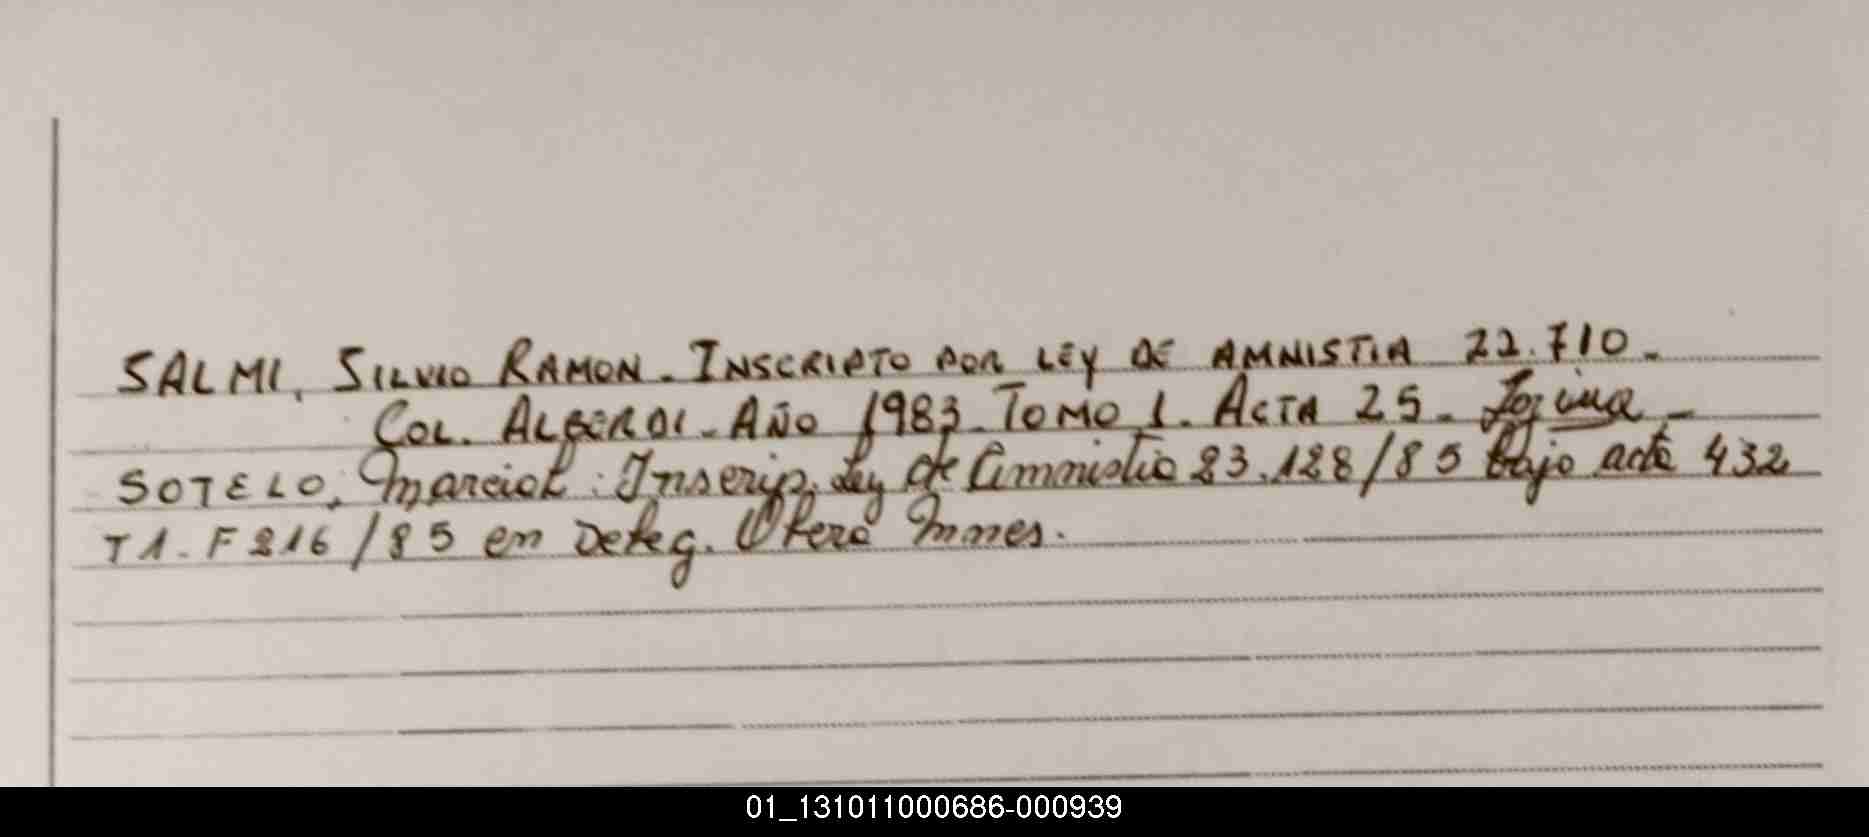 SALMI, SILVIO RAMON. INSCRIPTO POR LEY DE AMNISTIA 22.710.
COL. ALBERDI. AÑO 1983. TOMO 1. ACTA 25.
SOTELO, Marcial: Inscrip. Ley de Amnistia 23.128/85 bajo acta 432
T1. F 216/85 en Deleg.
01_131011000686-000939